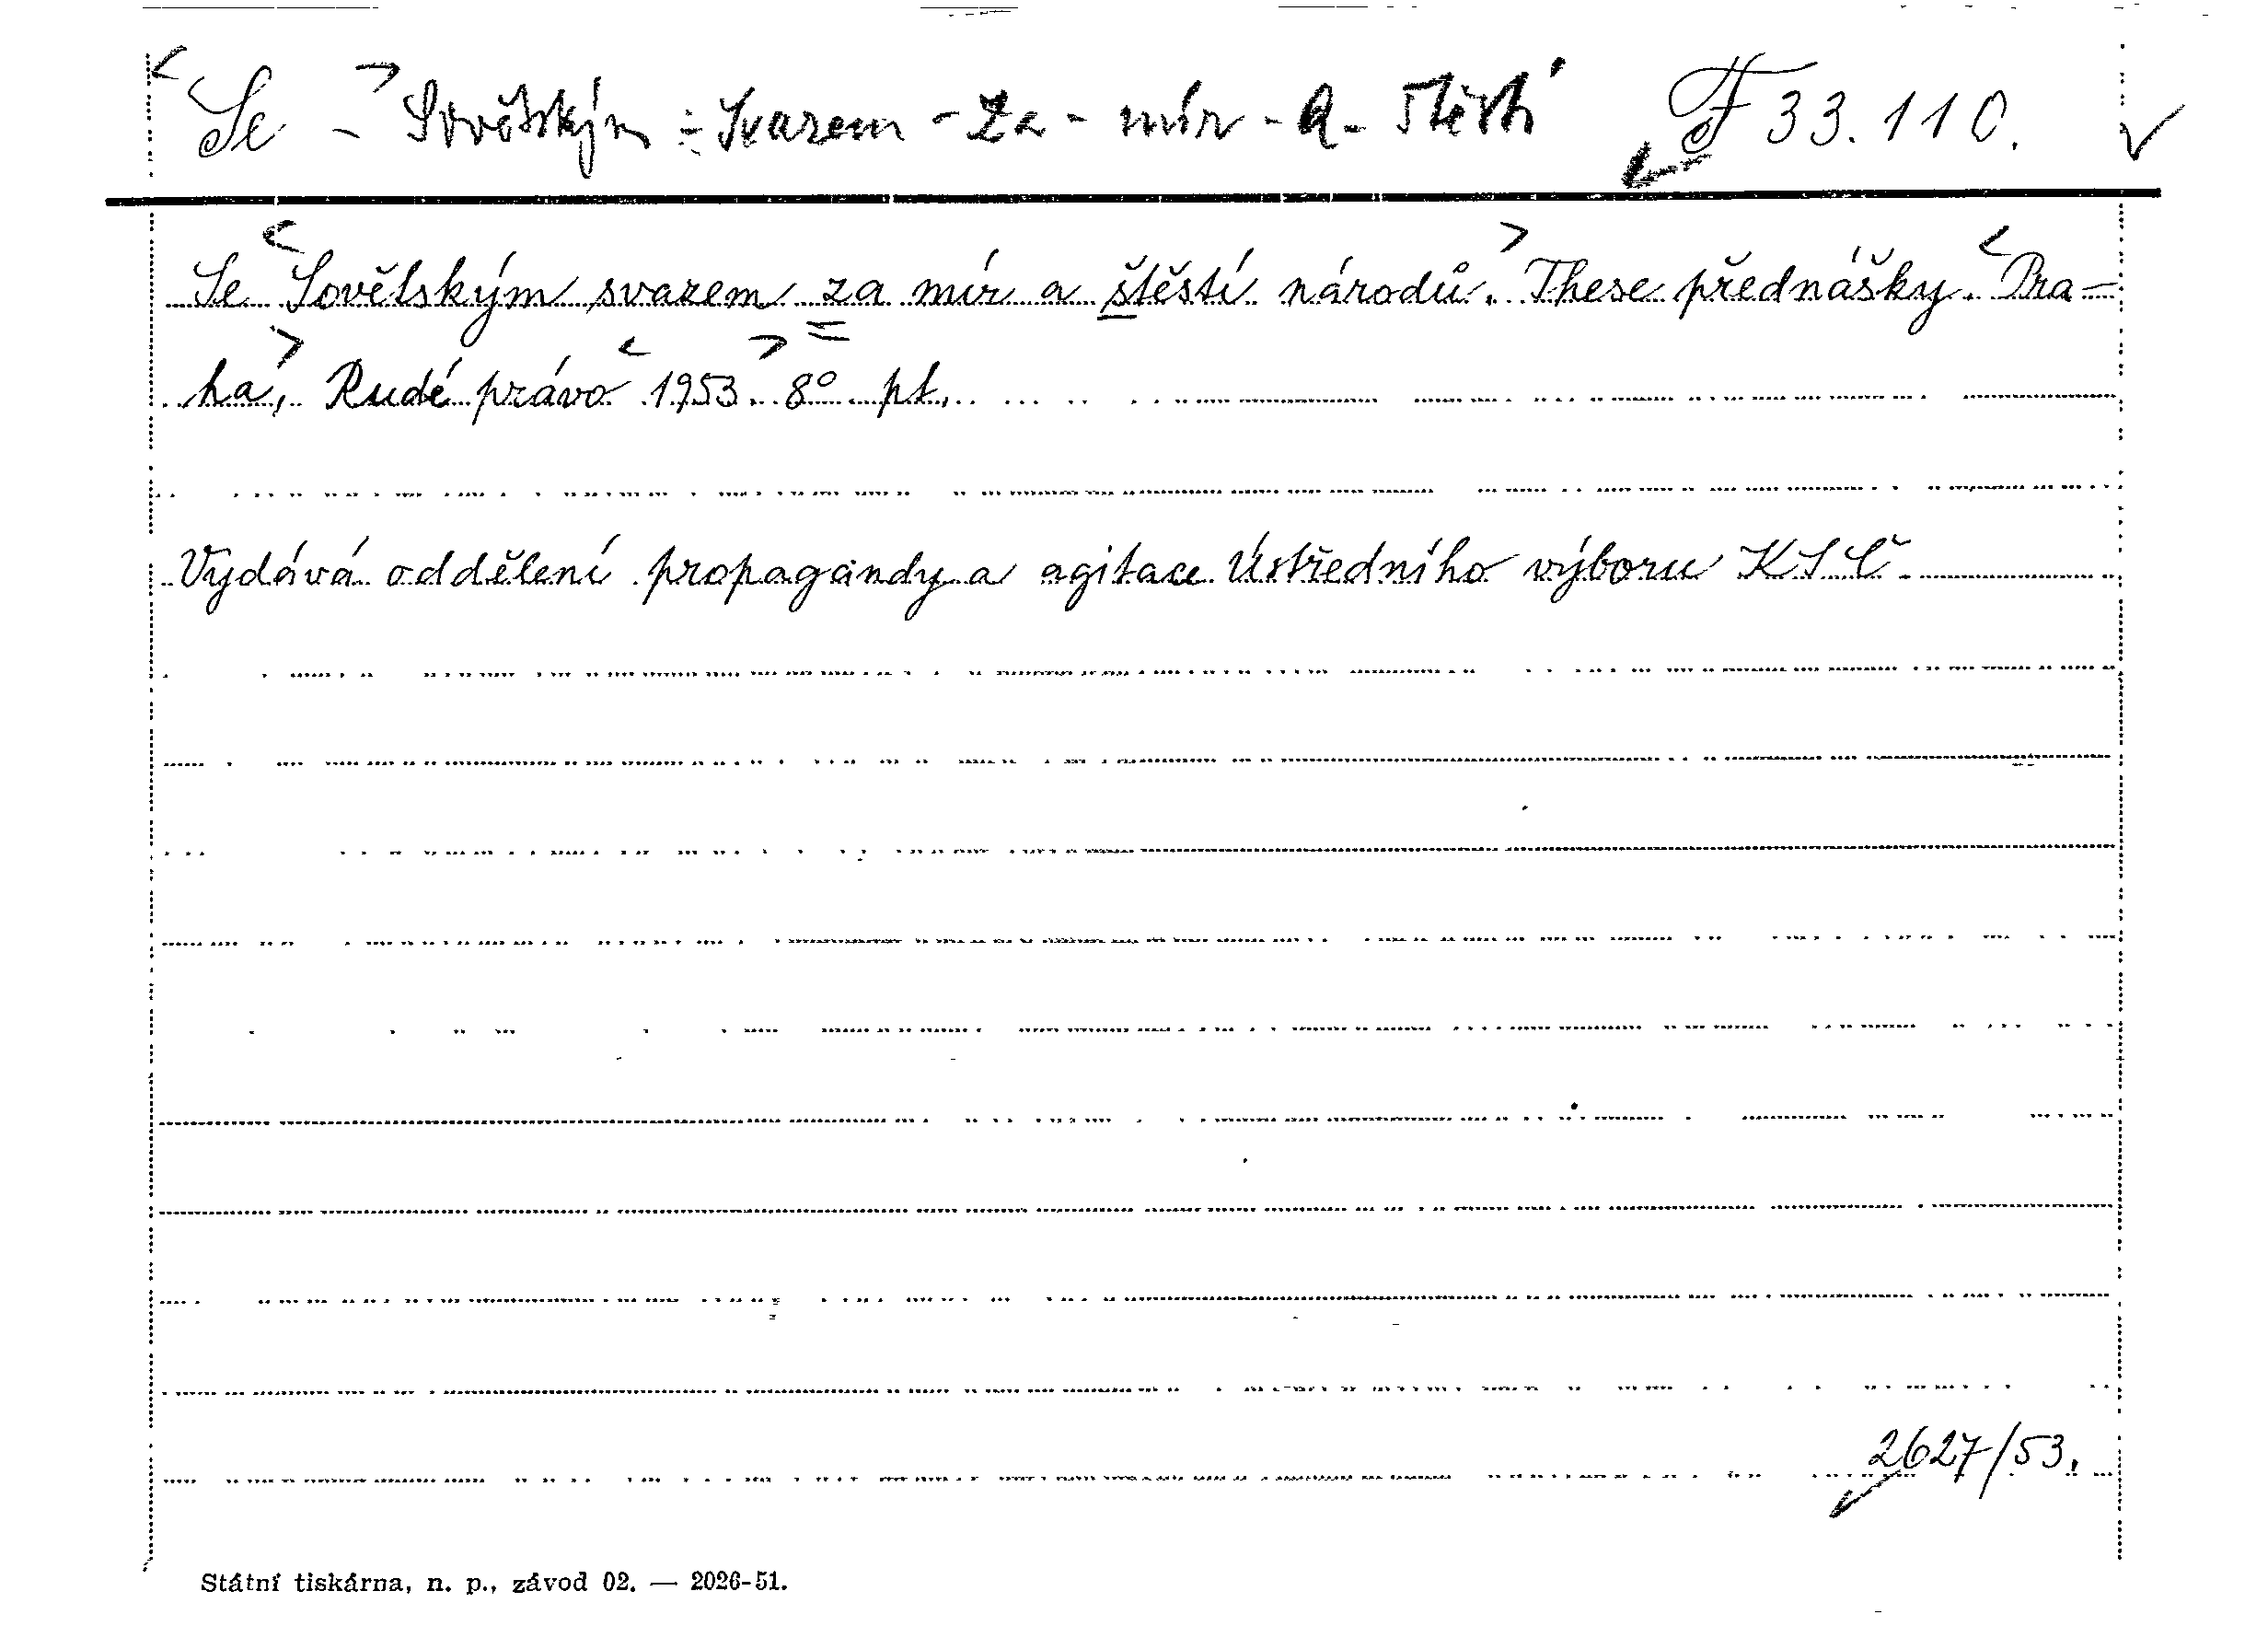 Se - Sovětským - Svazem - Za - mír - a - štěstí F 33.110.
Se Sovětským svazem za mír a štěstí národů. These přednášky. Pra-
ha, Rudé právo 1953. 8° pt.
Vydává oddělení propagandy a agitace Ústředního výboru KSČ
2627/53.
Státní tiskárna, n. p., závod 02. — 2026-51.